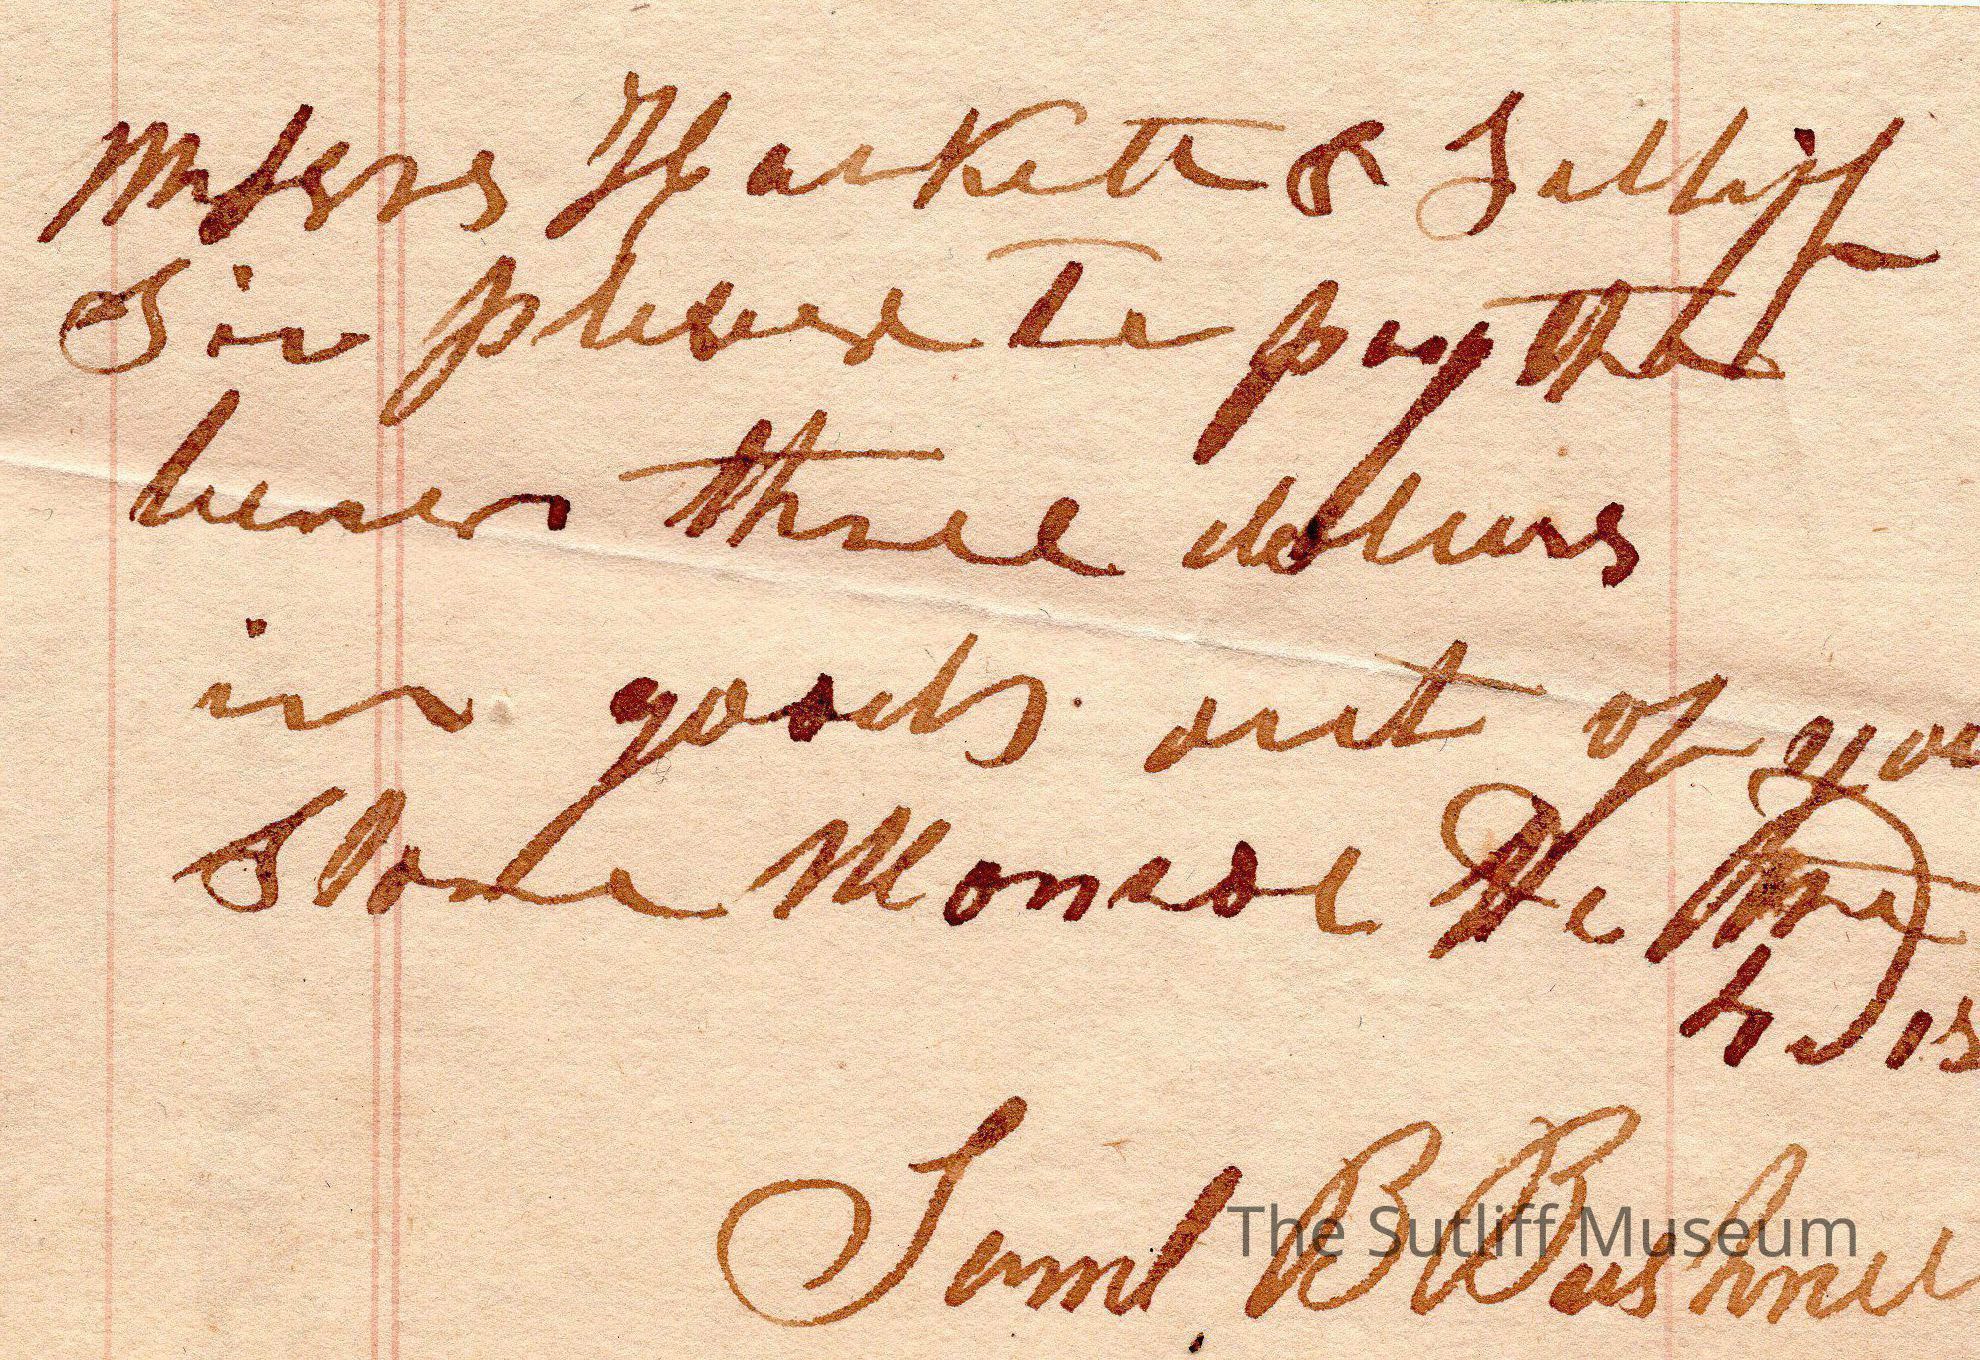 Messrs Harkett & Sutliff
Sir please to pay the
bearer three dollars
in goods out of you
Store Monroe
15
Saml B Bushnel
The Sutliff Museum